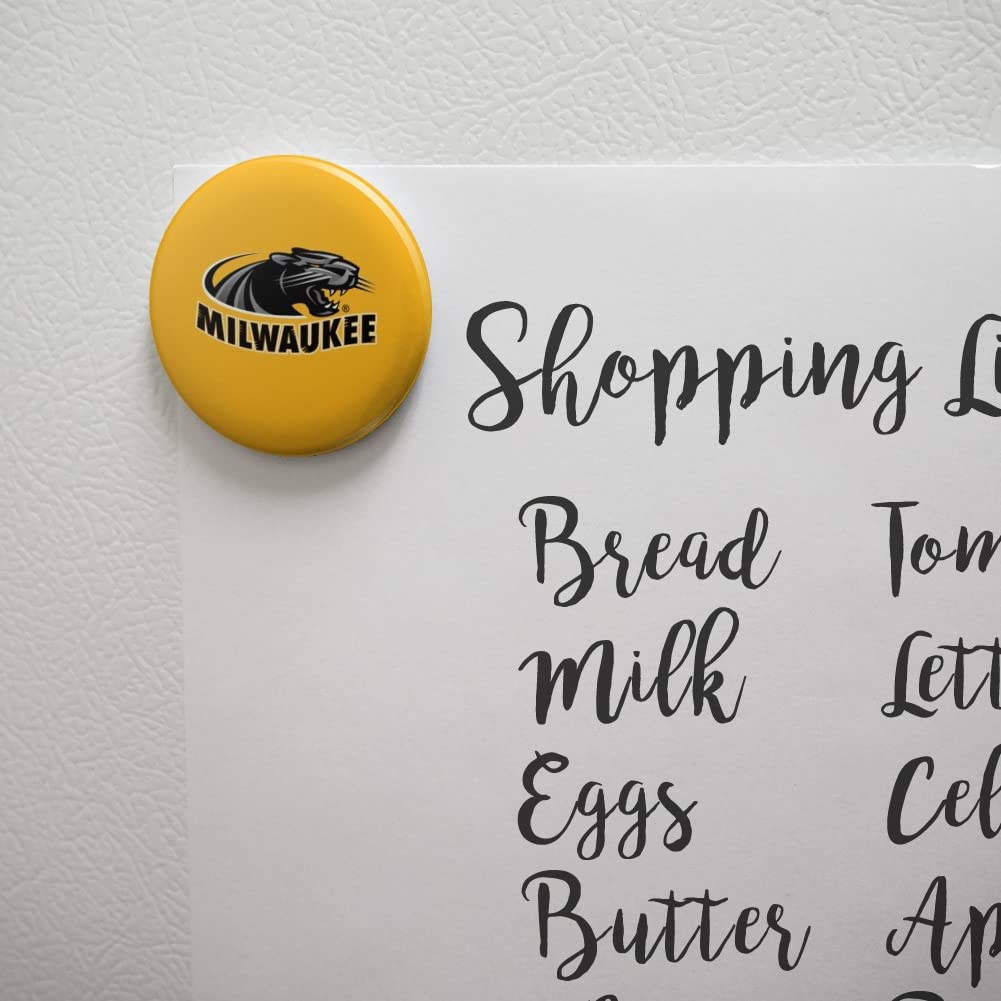 MILWAUKEE
®
Shopping Li
Bread
Milk
Eggs
Butter
Tom
Lett
Cel
Ap